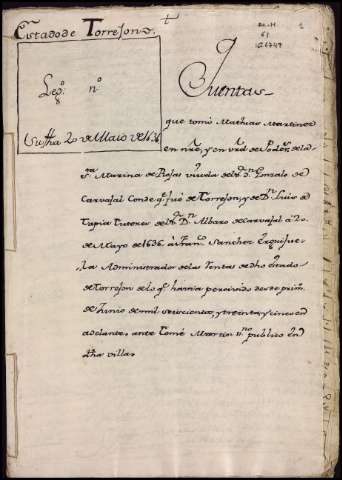 Estado de Torrejon.
Leg.º n.º
Su fha 20 de Maio de 1636
Cuentas
que tomó Mathias Martinez
en nre, y en vrd de Poder de la
S.ra Marina de Rojas viuda del S.r D.n Gonzalo de
Carvajal Conde q.e fué de Torrejon, y de D.n
Tapia Tutores del S.r D.n Albaro de Carvajal à 20
de Mayo de 1636. à Fran.co Sanchez
la Administrador de las Rentas de dho estado
de Torrejon de lo q.e havia percivido desde prim.º
de Junio de mil seiscientos, y treinta y cinco en
adelante, ante Tomé Martin S.no publico en
dha villa.